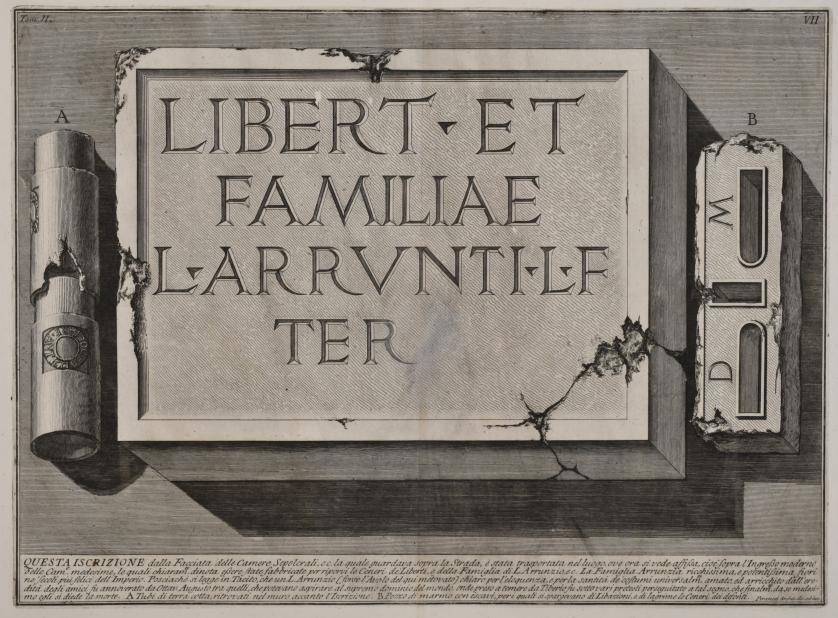 Tom. II.
VII
A
B
LIBERT · ET
FAMILIAE
L · ARRVNTI · L · F
TER
M
D
QUESTA ISCRIZIONE dalla Facciata delle Camere Sepolcrali, ec. la quale guardava sopra la Strada, è stata trasportata nel luogo, ove ora si vede affissa, cioè sopra l'Ingresso moderno
delle Cam.e medesime, le quali chiaram. dinota essere state fabbricate per riporvi le Ceneri de' Liberti, e della Famiglia di L. Arrunzio, ec. La Famiglia Arrunzia ricchissima, e potentissima fiorì
ne' secoli più felici dell'Imperio. Posciachè si legge in Tacito, che un L. Arrunzio (forse l'Avolo del qui mentovato) chiaro per l'eloquenza, e per la santità de' costumi universalm. amato, ed arricchito dall'ere-
dità degli amici, fù annoverato da Ottav. Augusto tra quelli, che potevano aspirare al supremo dominio del mondo, onde preso a temere da Tiberio fù sotto varj pretesti perseguitato a tal segno, che finalm. da se medesi-
mo egli si diede la morte. A. Tubi di terra cotta, ritrovati nel muro accanto l'Iscrizione. B. Pezzo di marmo con incavi, per i quali si spargevano le Libazioni, e di lagrime le Ceneri de' defonti.